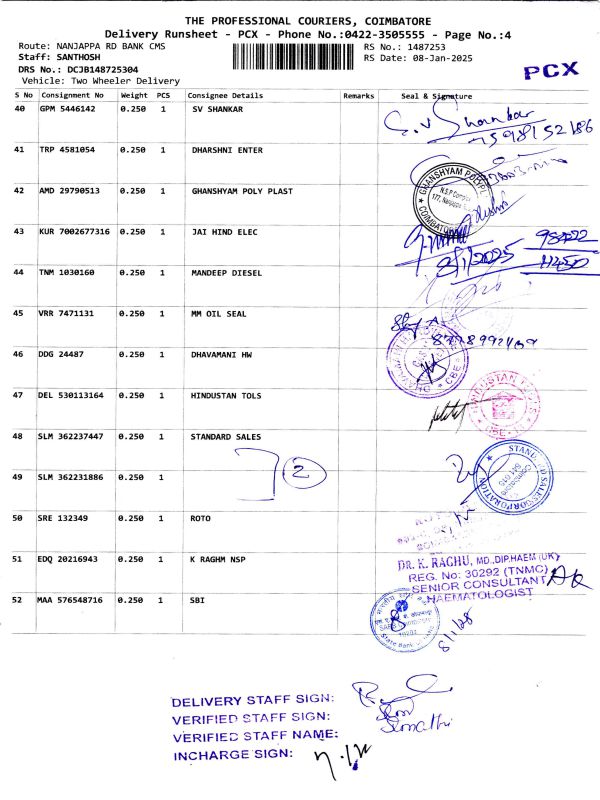 THE PROFESSIONAL COURIERS, COIMBATORE
Delivery Runsheet - PCX - Phone No.:0422-3505555 - Page No.:4
Route: NANJAPPA RD BANK CMS
RS No.: 1487253
Staff: SANTHOSH
RS Date: 08-Jan-2025
DRS No.: DCJB148725304
Vehicle: Two Wheeler Delivery
PCX
S No Consignment No Weight PCS Consignee Details Remarks Seal & Signature
40 GPM 5446142 0.250 1 SV SHANKAR
S.V Shankar
41 TRP 4581054 0.250 1 DHARSHNI ENTER
42 AMD 29790513 0.250 1 GHANSHYAM POLY PLAST
GHANSHYAM POLYPL
N.S.P Complex
177, Nanjappa
COIMBATO
43 KUR 7002677316 0.250 1 JAI HIND ELEC
8/1/2025
44 TNM 1030160 0.250 1 MANDEEP DIESEL
45 VRR 7471131 0.250 1 MM OIL SEAL
46 DDG 24487 0.250 1 DHAVAMANI HW
CBE
47 DEL 530113164 0.250 1 HINDUSTAN TOLS
HINDUSTAN
48 SLM 362237447 0.250 1 STANDARD SALES
STAND D SALES CORPORATION
Coimbatore
641 018
49 SLM 362231886 0.250 1
2
50 SRE 132349 0.250 1 ROTO
51 EDQ 20216943 0.250 1 K RAGHM NSP
DR. K. RAGHU, MD.,DIP.HAEM (UK)
REG. No: 30292 (TNMC)
SENIOR CONSULTANT
HAEMATOLOGIST
52 MAA 576548716 0.250 1 SBI
State Bank
DELIVERY STAFF SIGN:
VERIFIED STAFF SIGN:
VERIFIED STAFF NAME:
INCHARGE SIGN: